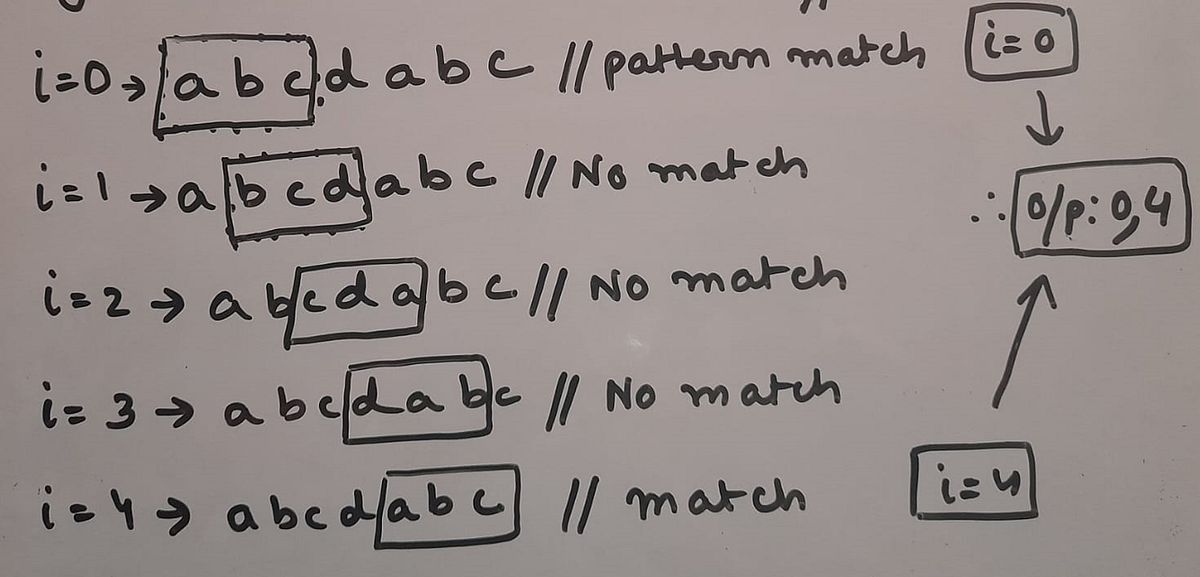 i=0→ a b c d a b c // pattern match
i=0
i=1→ a b c d a b c // No match
∴ o/p: 0,4
i=2 → a b c d a b c // No match
i= 3 → a b c d a b c // No match
i= 4 → a b c d a b c // match
i=4